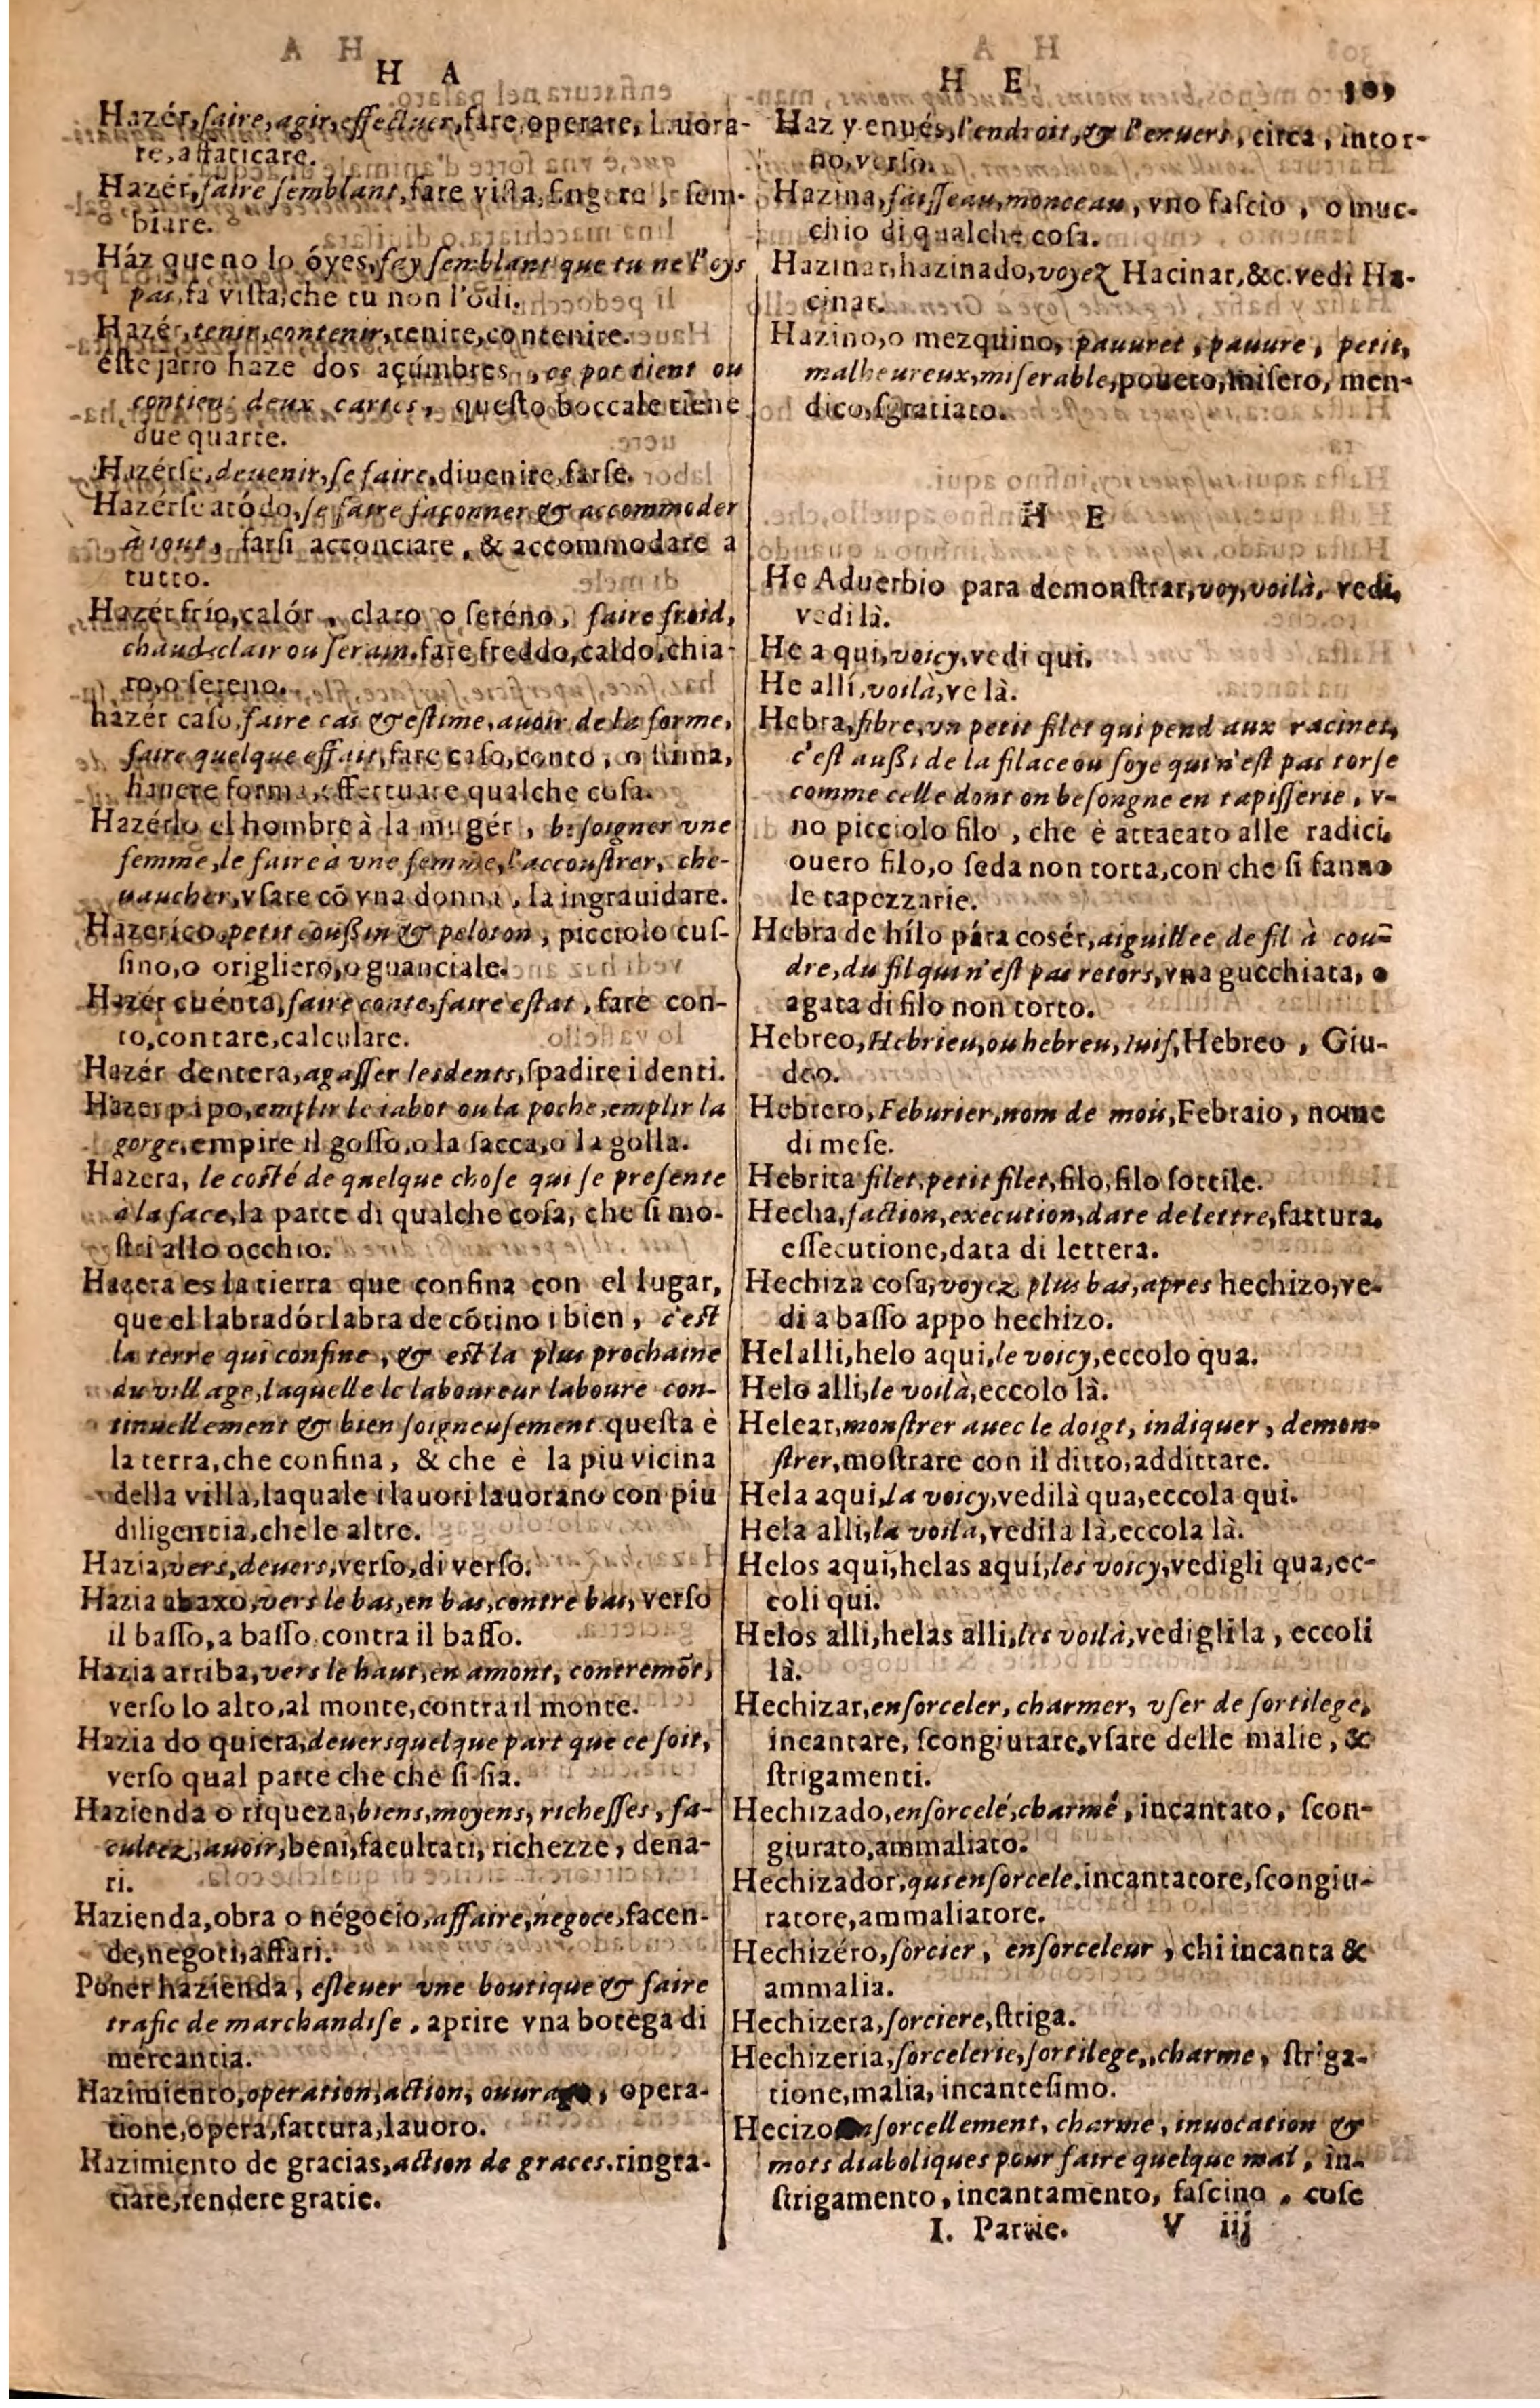 H A
Hazér, faire, agir, effectuer, fare, operare, lauora-
re, affaticare.
Hazér, faire semblant, fare vista, fingere, sem-
biare.
Ház que no lo óyes, fay semblant que tu ne l'oys
pas, fa vista, che tu non l'odi.
Hazér, tenir, contenir, tenire, contenire.
éste jarro haze dos açúmbres, ce pot tient ou
contient deux cartes, questo boccale tiene
due quarte.
Hazérse, deuenir, se faire, diuenire, farse.
Hazérse a tódo, se faire façonner & accommoder
à tout, farsi acconciare, & accommodare a
tutto.
Hazér frío, calór, claro o seréno, faire froid,
chaud, clair ou serain, fare freddo, caldo, chia-
ro, o sereno.
hazér caso, faire cas & estime, auoir de la forme,
faire quelque effait, fare caso, conto, o stima,
hauere forma, effettuare qualche cosa.
Hazérlo el hombre à la mugér, besoigner vne
femme, le faire à vne femme, l'accoustrer, che-
uaucher, vsare cō vna donna, la ingrauidare.
Hazeríco, petit coußin & peloton, picciolo cus-
sino, o origliero, o guanciale.
Hazér cuénta, faire conte, faire estat, fare con-
to, contare, calculare.
Hazér dentera, agasser les dents, spadire i denti.
Hazer papo, emplir le iabot ou la poche, emplir la
gorge, empire il gosso, o la sacca, o la golla.
Hazera, le costé de quelque chose qui se presente
à la face, la parte di qualche cosa, che si mo-
stri allo occhio.
Hazera es la tierra que confina con el lugar,
que el labradór labra de cótino i bien, c'est
la terre qui confine, & est la plus prochaine
du village, laquelle le laboureur laboure con-
tinuellement & bien soigneusement questa è
la terra, che confina, & che è la piu vicina
della villa, laquale i lauori lauorano con piu
diligentia, che le altre.
Hazia, vers, deuers, verso, di verso.
Hazia abaxo, vers le bas, en bas, contre bas, verso
il basso, a basso contra il basso.
Hazia arriba, vers le haut, en amont, contremōt,
verso lo alto, al monte, contra il monte.
Hazia do quiera, deuers quelque part que ce soit,
verso qual parte che che si sia.
Hazienda o riqueza, biens, moyens, richesses, fa-
cultez, auoir, beni, facultati, richezze, dena-
ri.
Hazienda, obra o négocio, affaire, negoce, facen-
de, negoti, affari.
Poner hazienda, esleuer vne boutique & faire
trafic de marchandise, aprire vna botega di
mercantia.
Hazimiento, operation, action, ouurage, opera-
tione, opera, fattura, lauoro.
Hazimiento de gracias, action de graces, ringra-
tiare, rendere gratie.
H E
309
Haz y enués, l'endroit, & l'enuers, circa, intor-
no, verso.
Hazina, faisseau, monceau, vno fascio, o muc-
chio di qualche cosa.
Hazinar, hazinado, voyez Hacinar, &c. vedi Ha-
cinar.
Hazino, o mezquino, pauuret, pauure, petit,
malheureux, miserable, pouero, misero, men-
dico, sgratiato.
H E
He Aduerbio para demonstrar, voy, voilà, vedi,
vedi là.
He a qui, voicy, vedi qui.
He allí, voilà, ve là.
Hebra, fibre, vn petit filet qui pend aux racines,
c'est außi de la filace ou soye qui n'est pas torse
comme celle dont on besongne en tapisserie, v-
no picciolo filo, che è attacato alle radici,
ouero filo, o seda non torta, con che si fanno
le tapezzarie.
Hebra de hílo pára cosér, aiguillee de fil à cou-
dre, du fil qui n'est pas retors, vna gucchiata, o
agata di filo non torto.
Hebreo, Hebrieu, ou hebreu, iuif, Hebreo, Giu-
deo.
Hebrero, Feburier, nom de mois, Febraio, nome
di mese.
Hebrita filet, petit filet, filo, filo sottile.
Hecha, faction, execution, date de lettre, fattura,
essecutione, data di lettera.
Hechiza cosa, voyez plus bas, apres hechizo, ve-
di a basso appo hechizo.
Helalli, helo aqui, le voicy, eccolo qua.
Helo alli, le voilà, eccolo là.
Helear, monstrer auec le doigt, indiquer, demon-
strer, mostrare con il ditto, addittare.
Hela aqui, la voicy, vedilà qua, eccola qui.
Hela alli, la voila, vedila là, eccola là.
Helos aqui, helas aquí, les voicy, vedigli qua, ec-
coli qui.
Helos alli, helas alli, les voilà, vedigli la, eccoli
là.
Hechizar, ensorceler, charmer, vser de sortilege,
incantare, scongiurare, vsare delle malie, &
strigamenti.
Hechizado, ensorcelé, charmé, incantato, scon-
giurato, ammaliato.
Hechizador, qui ensorcele, incantatore, scongiu-
ratore, ammaliatore.
Hechizéro, sorcier, ensorceleur, chi incanta &
ammalia.
Hechizera, sorciere, striga.
Hechizeria, sorcelerie, sortilege, charme, striga-
tione, malia, incantesimo.
Hecizo ensorcellement, charme, inuocation &
mots diaboliques pour faire quelque mal, in-
strigamento, incantamento, fascino, cose
I. Partie. V iij